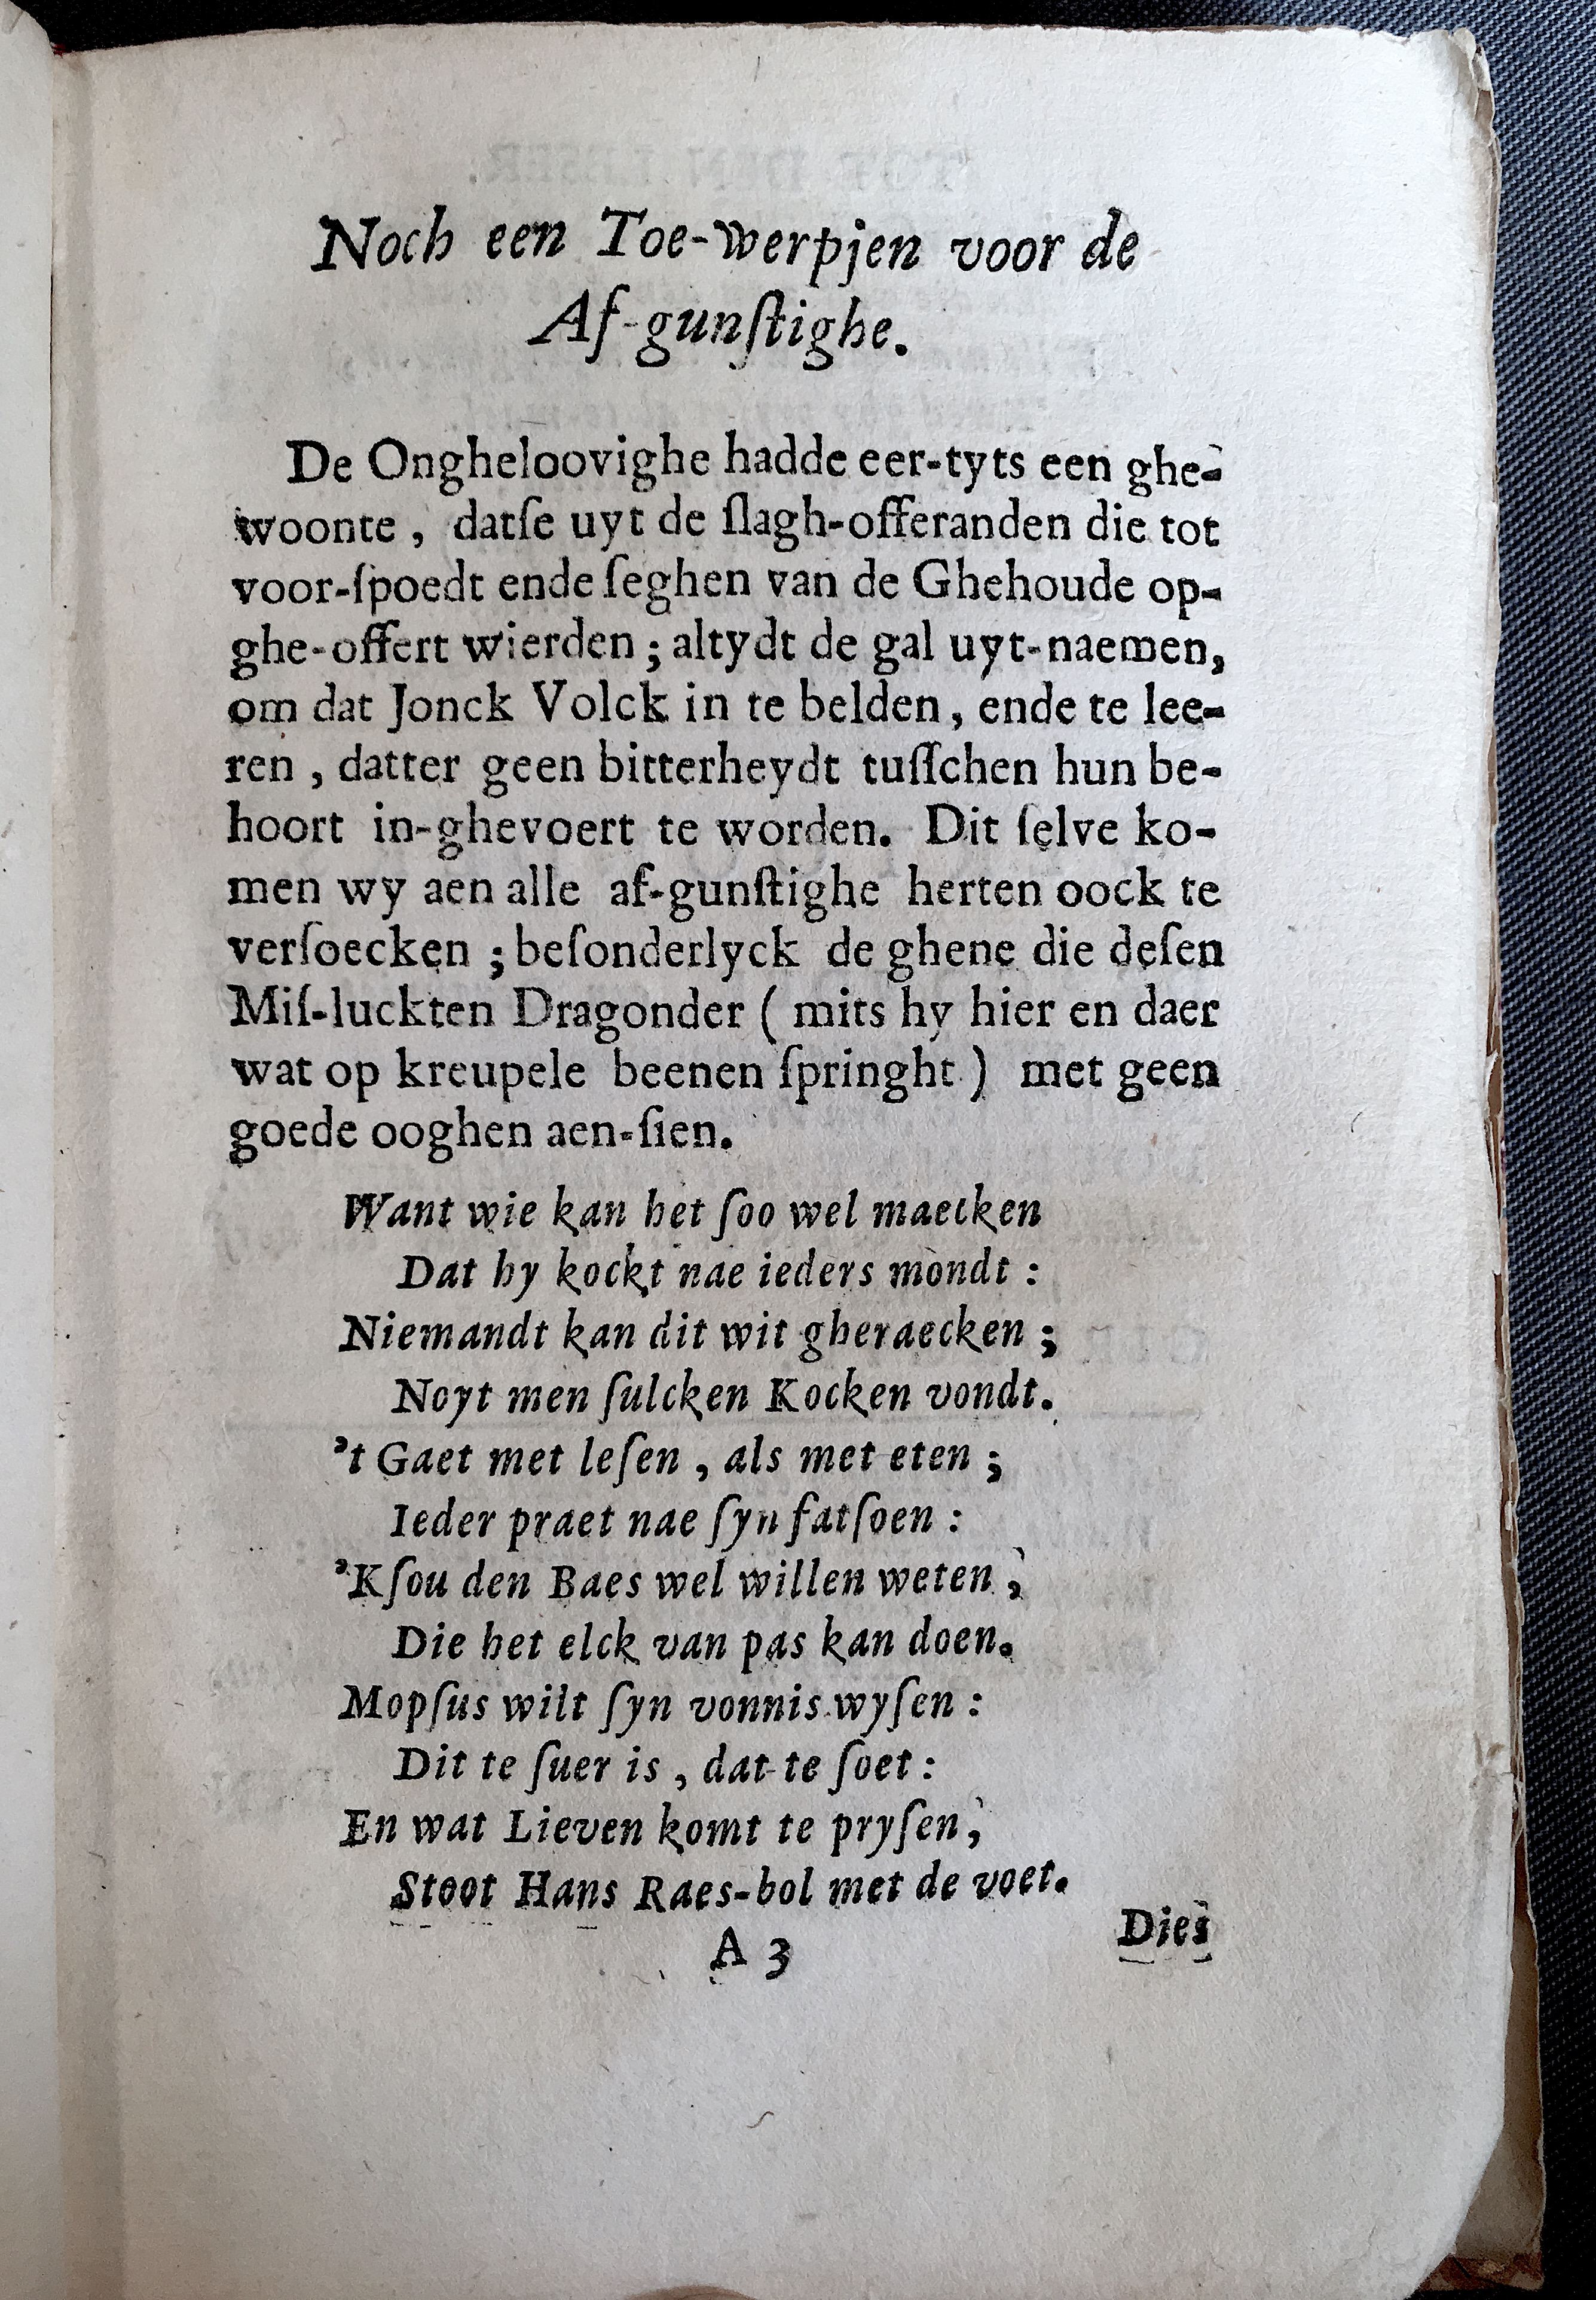 Noch een Toe-werpjen voor de
Af-gunſtighe.
De Ongheloovighe hadde eer-tyts een ghe-
woonte , datſe uyt de ſlagh-offeranden die tot
voor-ſpoedt ende ſeghen van de Ghehoude op-
ghe-offert wierden ; altydt de gal uyt-naemen,
om dat Jonck Volck in te belden, ende te lee-
ren , datter geen bitterheydt tuſſchen hun be-
hoort in-ghevoert te worden. Dit ſelve ko-
men wy aen alle af-gunſtighe herten oock te
verſoecken ; beſonderlyck de ghene die deſen
Miſ-luckten Dragonder ( mits hy hier en daer
wat op kreupele beenen ſpringht ) met geen
goede ooghen aen-ſien.
Want wie kan het ſoo wel maecken
Dat hy kockt nae ieders mondt :
Niemandt kan dit wit gheraecken ;
Noyt men ſulcken Kocken vondt.
't Gaet met leſen , als met eten ;
Ieder praet nae ſyn fatſoen :
'Kſou den Baes wel willen weten ,
Die het elck van pas kan doen.
Mopſus wilt ſyn vonnis wyſen :
Dit te ſuer is , dat te ſoet :
En wat Lieven komt te pryſen ,
Stoot Hans Raes-bol met de voet.
A 3
Dies